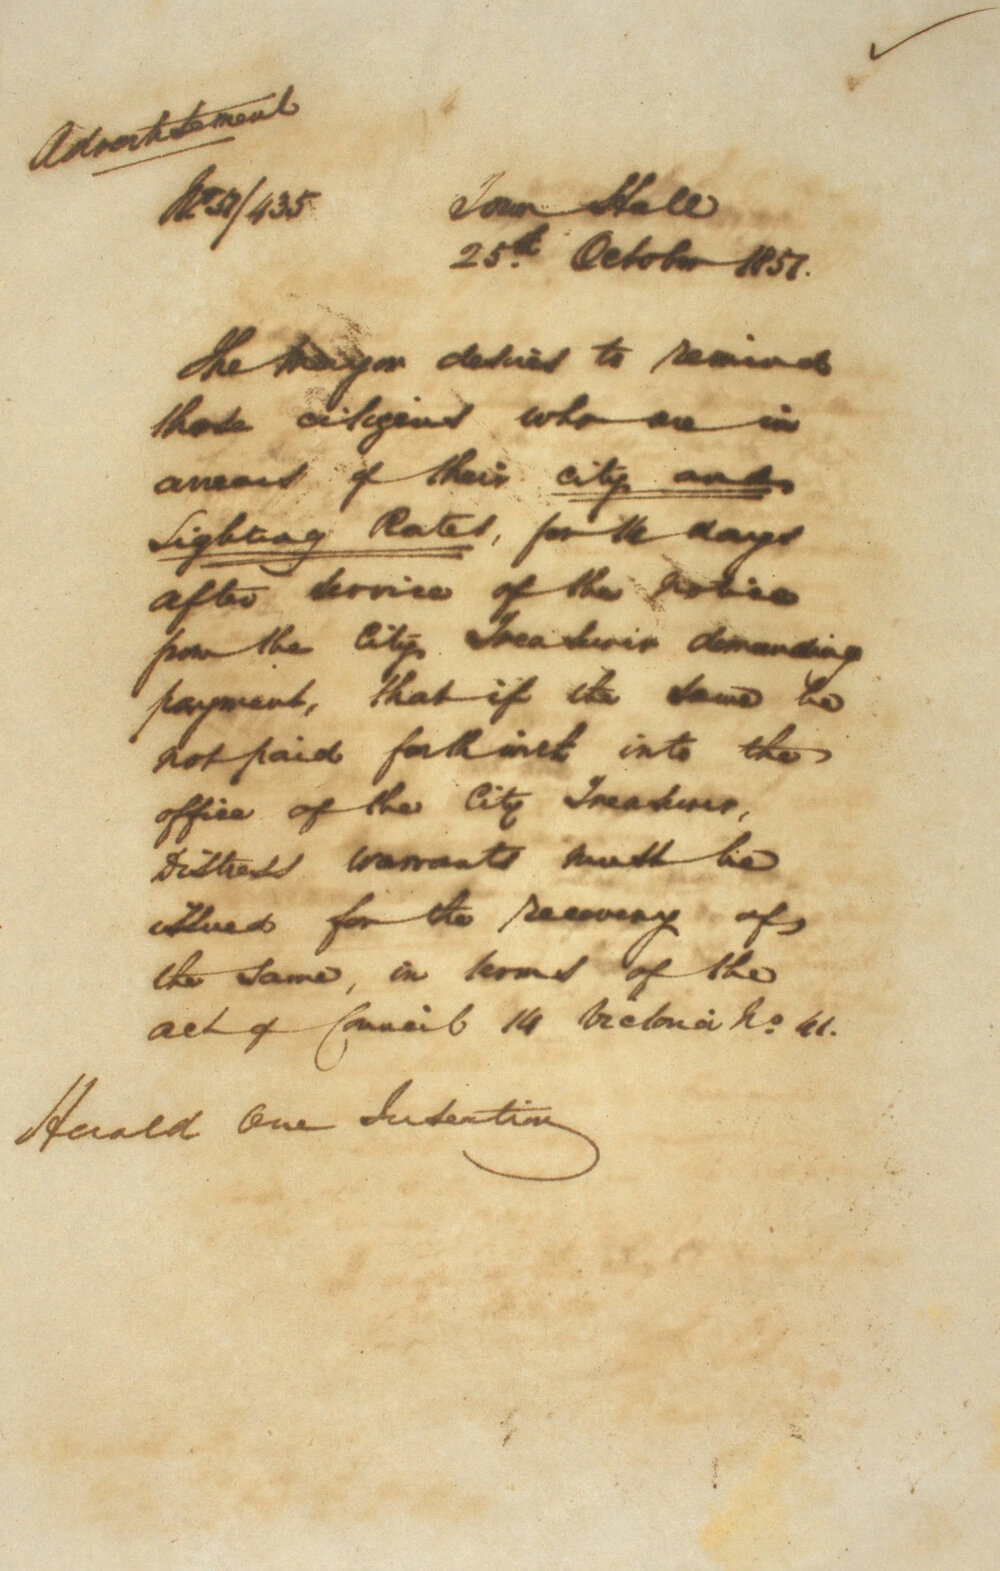 Advertisement
No 51/435 Town Hall
25th October 1851.
The Mayor desires to remind
those citizens who are in
arrears of their city and
Lighting Rates, for 14 days
after service of the notice
from the City Treasurer demanding
payment, that if the same be
not paid forthwith into the
office of the City Treasurer,
Distress warrants must be
issued for the recovery of
the same, in terms of the
act of Council 14 Victoria No. 41.
Herald One Insertion